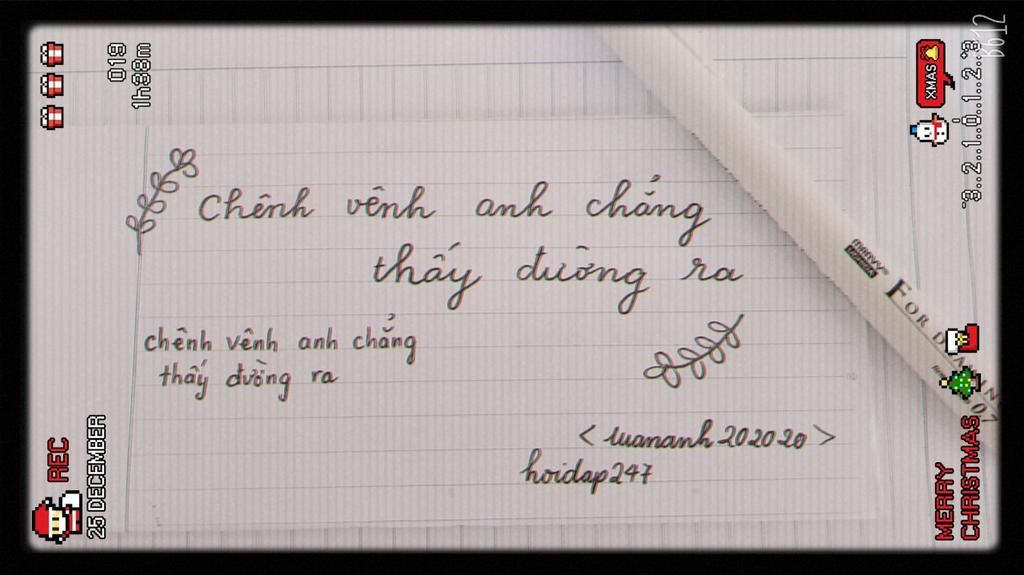 Chênh vênh anh chẳng
thấy đường ra
chênh vênh anh chẳng
thấy đường ra
<tuananh202020>
hoidap247
019
1h38m
XMAS
-3..2..1..0..1..2..3
B612
marvy
FOR DRAWIN
07
REC
25 DECEMBER
MERRY
CHRISTMAS